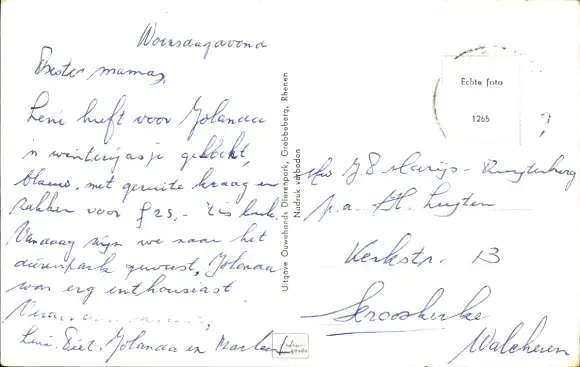 Woensdagavond
Beste mama,
Leni heeft voor Jolanda
'n winterjasje gekocht,
blauw, met geruite kraag en
zakken voor f 25,- 't is leuk.
Vandaag zijn we naar het
dierenpark geweest, Jolanda
was erg enthousiast
Leni. Piet. Jolanda en
Uitgave Ouwehands Dierenpark, Grebbeberg, Rhenen
Nadruk verboden
Echte foto
1265
J. E. Marijs-
p.a. Luyten
Kerkstr. 13
Serooskerke
Walcheren